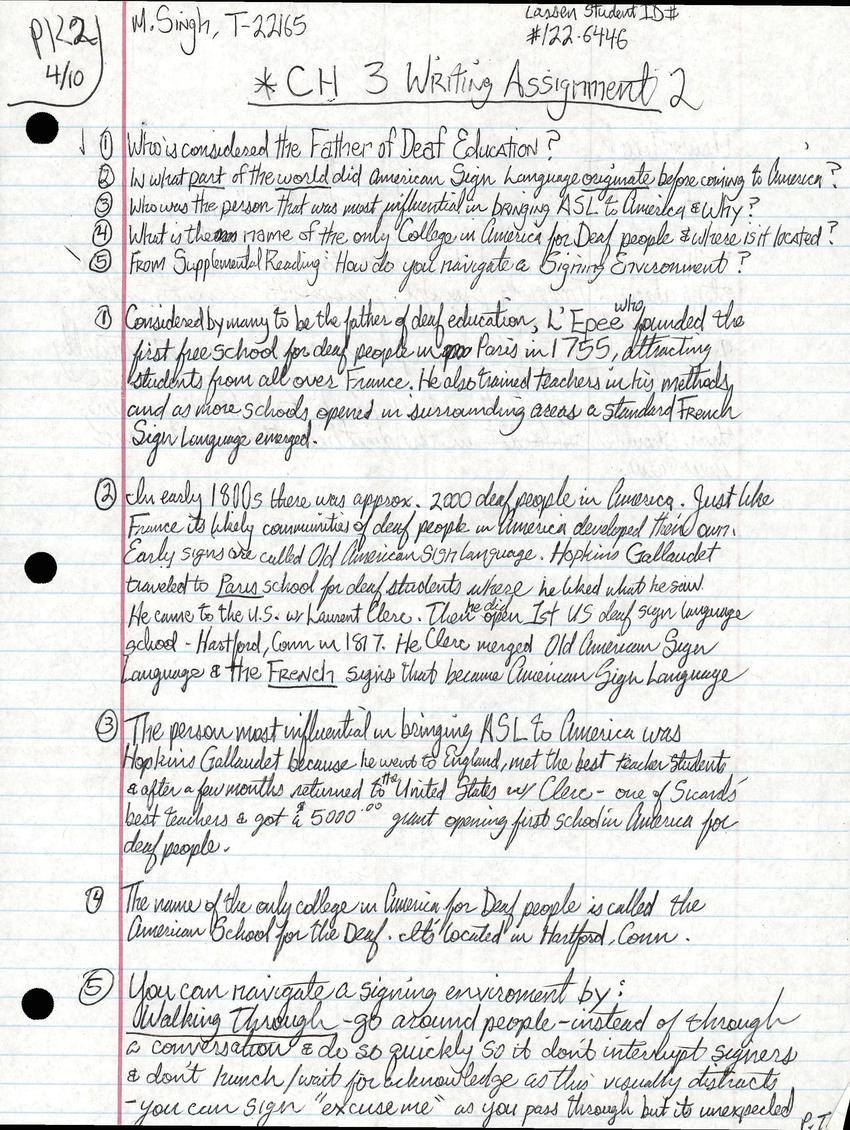 M. Singh, T-22165
Lassen Student ID#
#122-6446
4/10
* CH 3 Writing Assignment 2
① Who is considered the Father of Deaf Education?
② In what part of the world did American Sign Language originate before coming to America?
③ Who was the person that was most influential in bringing ASL to America & Why?
④ What is the name of the only College in America for Deaf people & where is it located?
⑤ From Supplemental Reading: How do you navigate a Signing Enviroment?
① Considered by many to be the father of deaf education, L'Epee who founded the
first free school for deaf people in Paris in 1755, attracting
students from all over France. He also trained teachers in his methods,
and as more schools opened in surrounding areas a standard French
Sign Language emerged.
② In early 1800s there was approx. 2000 deaf people in America. Just like
France its likely communities of deaf people in America developed their own.
Early signs are called Old American Sign Language. Hopkins Gallaudet
traveled to Paris school for deaf students where he liked what he saw.
He came to the U.S. w/ Laurent Clerc. Then he did open 1st US deaf sign language
school - Hartford, Conn in 1817. He Clerc merged Old American Sign
Language & the French signs that became American Sign Language
③ The person most influential in bringing ASL to America was
Hopkins Gallaudet because he went to England, met the best teacher students
& after a few months returned to the United States w/ Clerc - one of Sicards'
best teachers & got a $ 5000.00 grant opening first school in America for
deaf people.
④ The name of the only college in America for Deaf people is called the
American School for the Deaf. It's located in Hartford, Conn.
⑤ You can navigate a signing enviroment by:
Walking Through - go around people - instead of through
a conversation & do so quickly so it don't interrupt signers
& don't hunch/wait for acknowledge as this visually distracts
- you can sign "excuse me" as you pass through but its unexpected
P.T.